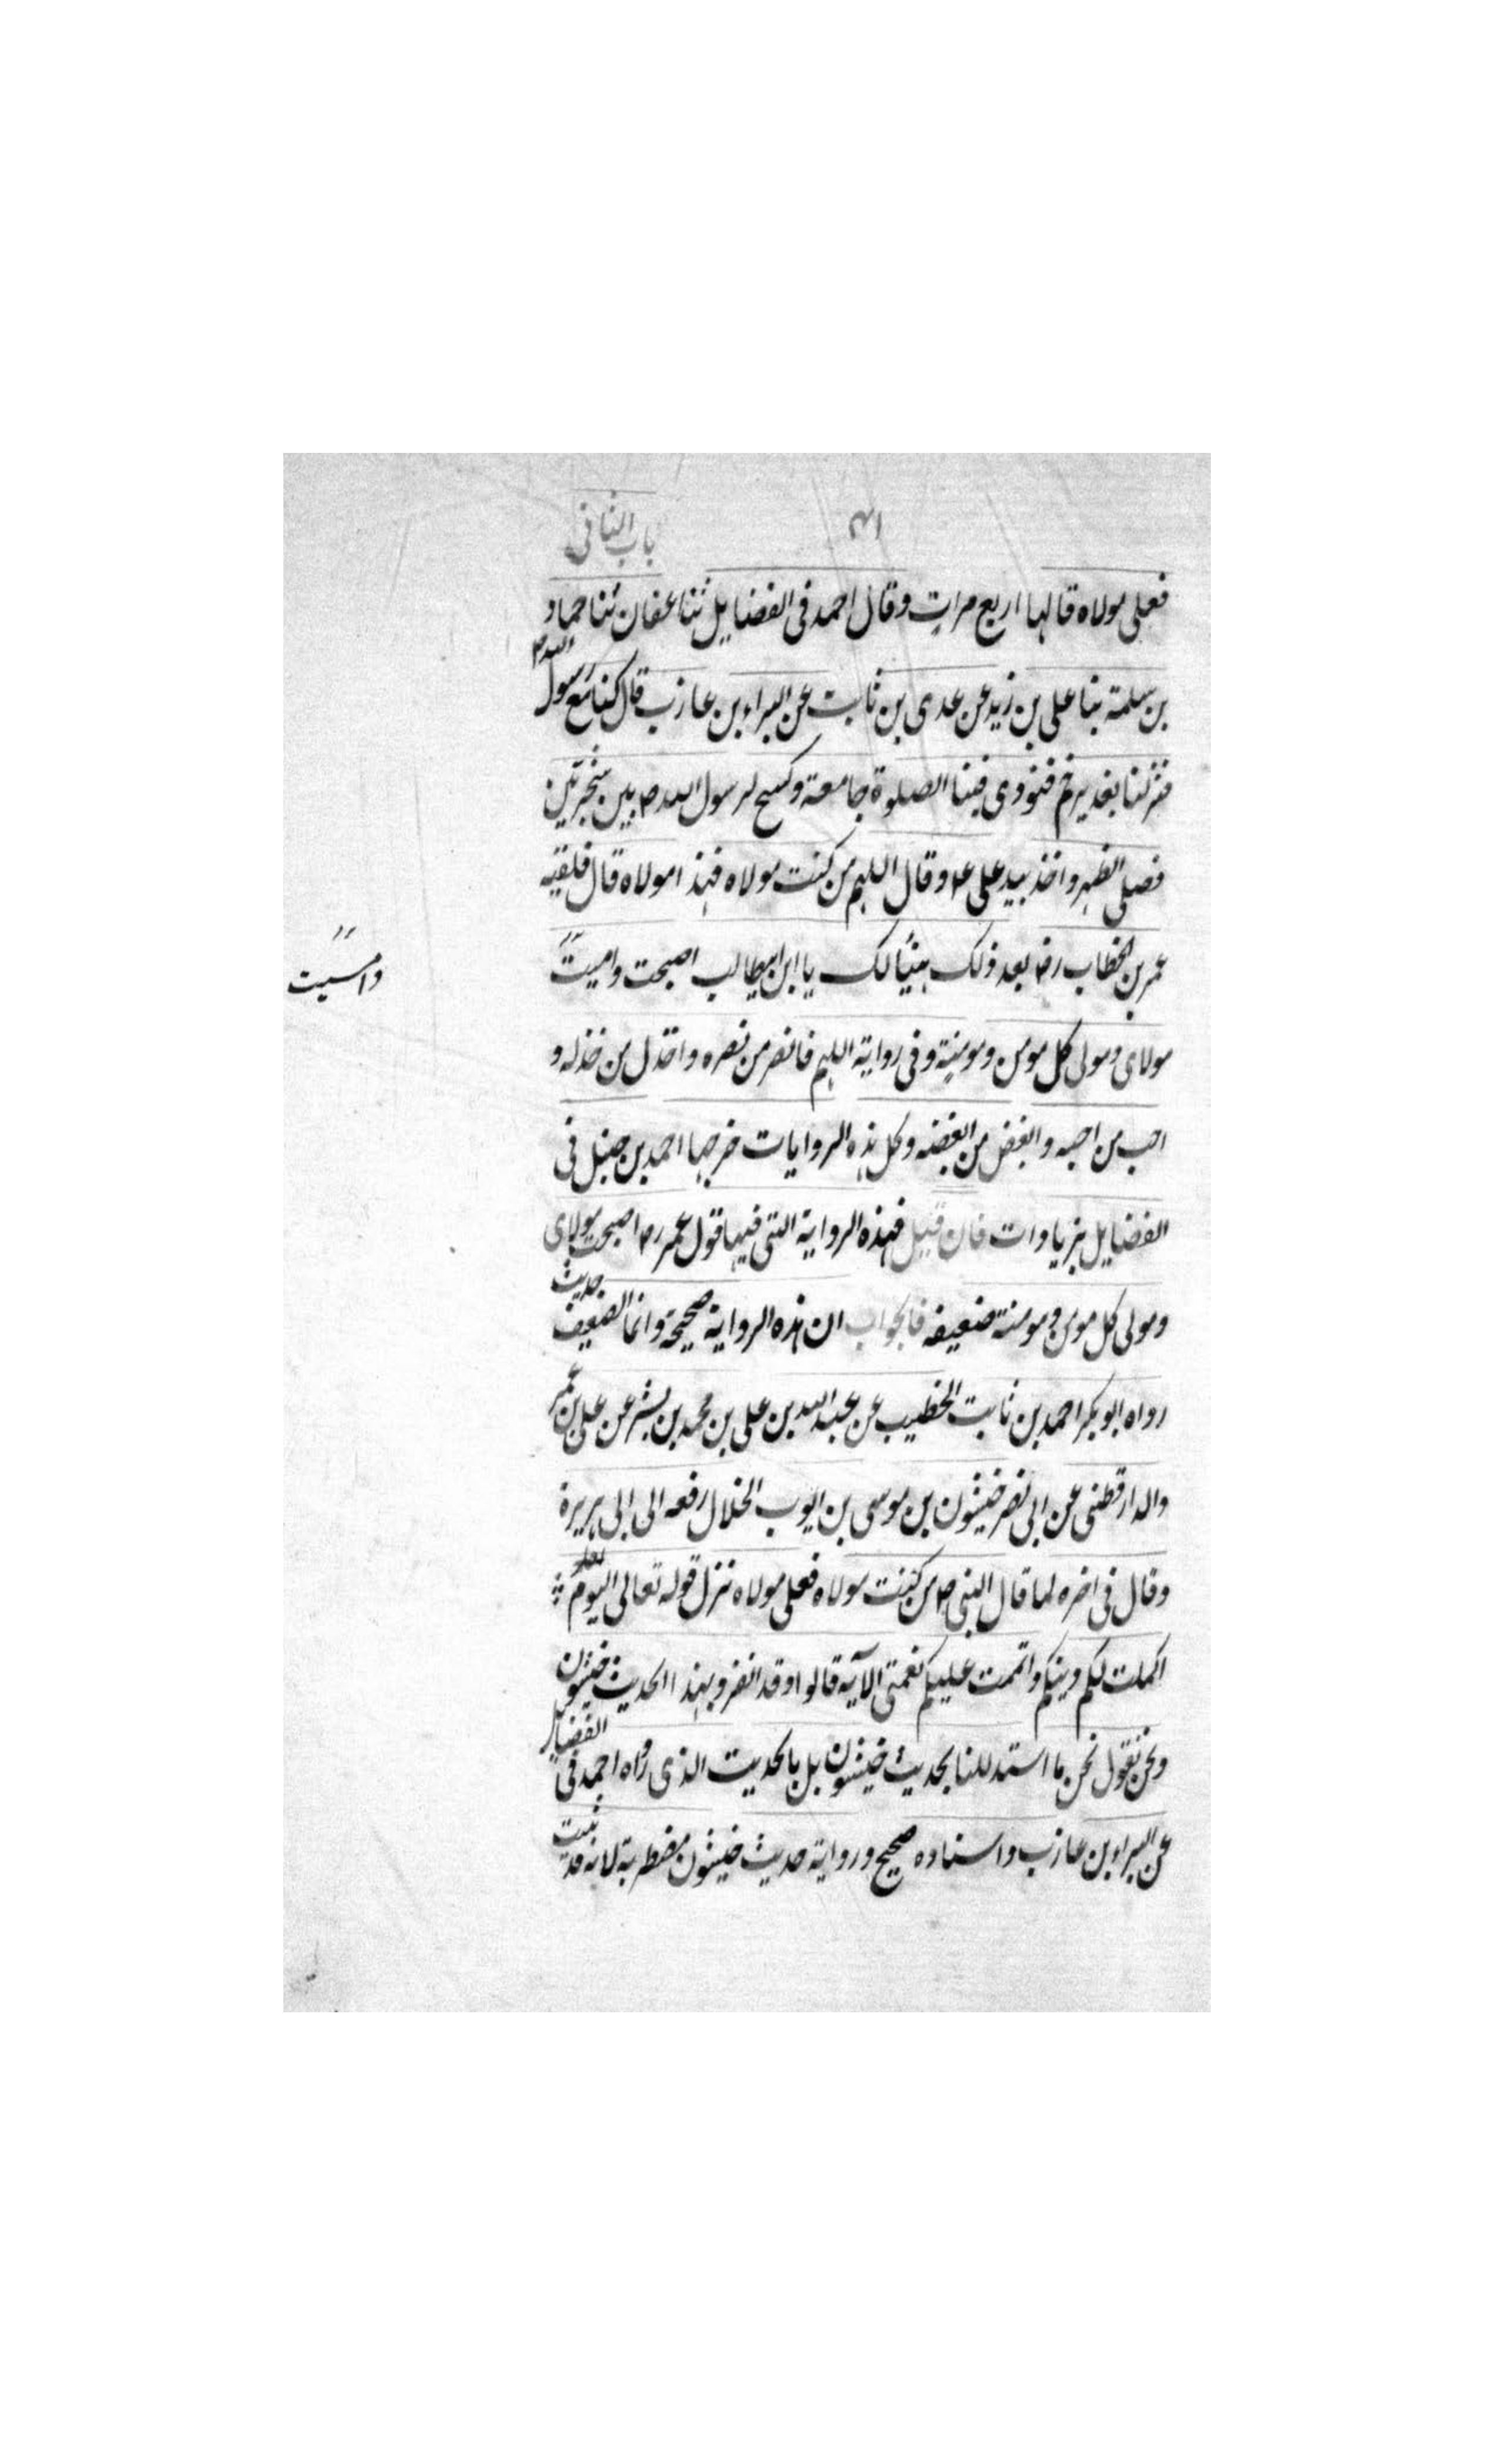 باب الثانی
۴۱
فعلی مولاه قالها اربع مرات وقال احمد فی الفضایل ثنا عفان ثنا حماد
بن سلمة ثنا علی بن زید عن عدی بن ثابت عن البراء بن عازب قال کنا مع رسول الله ص
فنزلنا بغدیر خم فنودی فینا الصلوة جامعة وکسح لرسول الله ص بین شجرتین
فصلی الظهر واخذ بید علی ع وقال اللهم من کنت مولاه فهذا مولاه قال فلقیه
عمر بن الخطاب رض بعد ذلک هنیئا لک یا ابن ابیطالب اصبحت وامیت
وامسیت
مولای ومولی کل مومن ومومنة وفی روایة اللهم فانصر من نصره واخذل من خذله و
احب من احبه وابغض من ابغضه وکل هذه الروایات خرجها احمد بن حنبل فی
الفضایل بزیادات فان قیل فهذه الروایة التی فیها قول عمر رض اصبحت مولای
ومولی کل مومن ومومنة ضعیفه فالجواب ان هذه الروایة صحیحة وانما الضعیف حدیث
رواه ابو بکر احمد بن ثابت الخطیب عن عبد الله بن علی بن محمد بن بشر عن علی بن عمر
والدارقطنی عن ابی نصر خیشون بن موسی بن ایوب الخلال رفعه الی ابی هریرة
وقال فی اخره لما قال النبی ص من کنت مولاه فعلی مولاه نزل قوله تعالی الیوم
اکملت لکم دینکم واتممت علیکم نعمتی الآیة قالوا وقد انفرد بهذا الحدیث خیشون
ونحن نقول نحن ما استدللنا بحدیث خیشون بل بالحدیث الذی رواه احمد فی الفضایل
عن البراء بن عازب واسناده صحیح وروایة حدیث خیشون مضطربة لانه قد ثبت